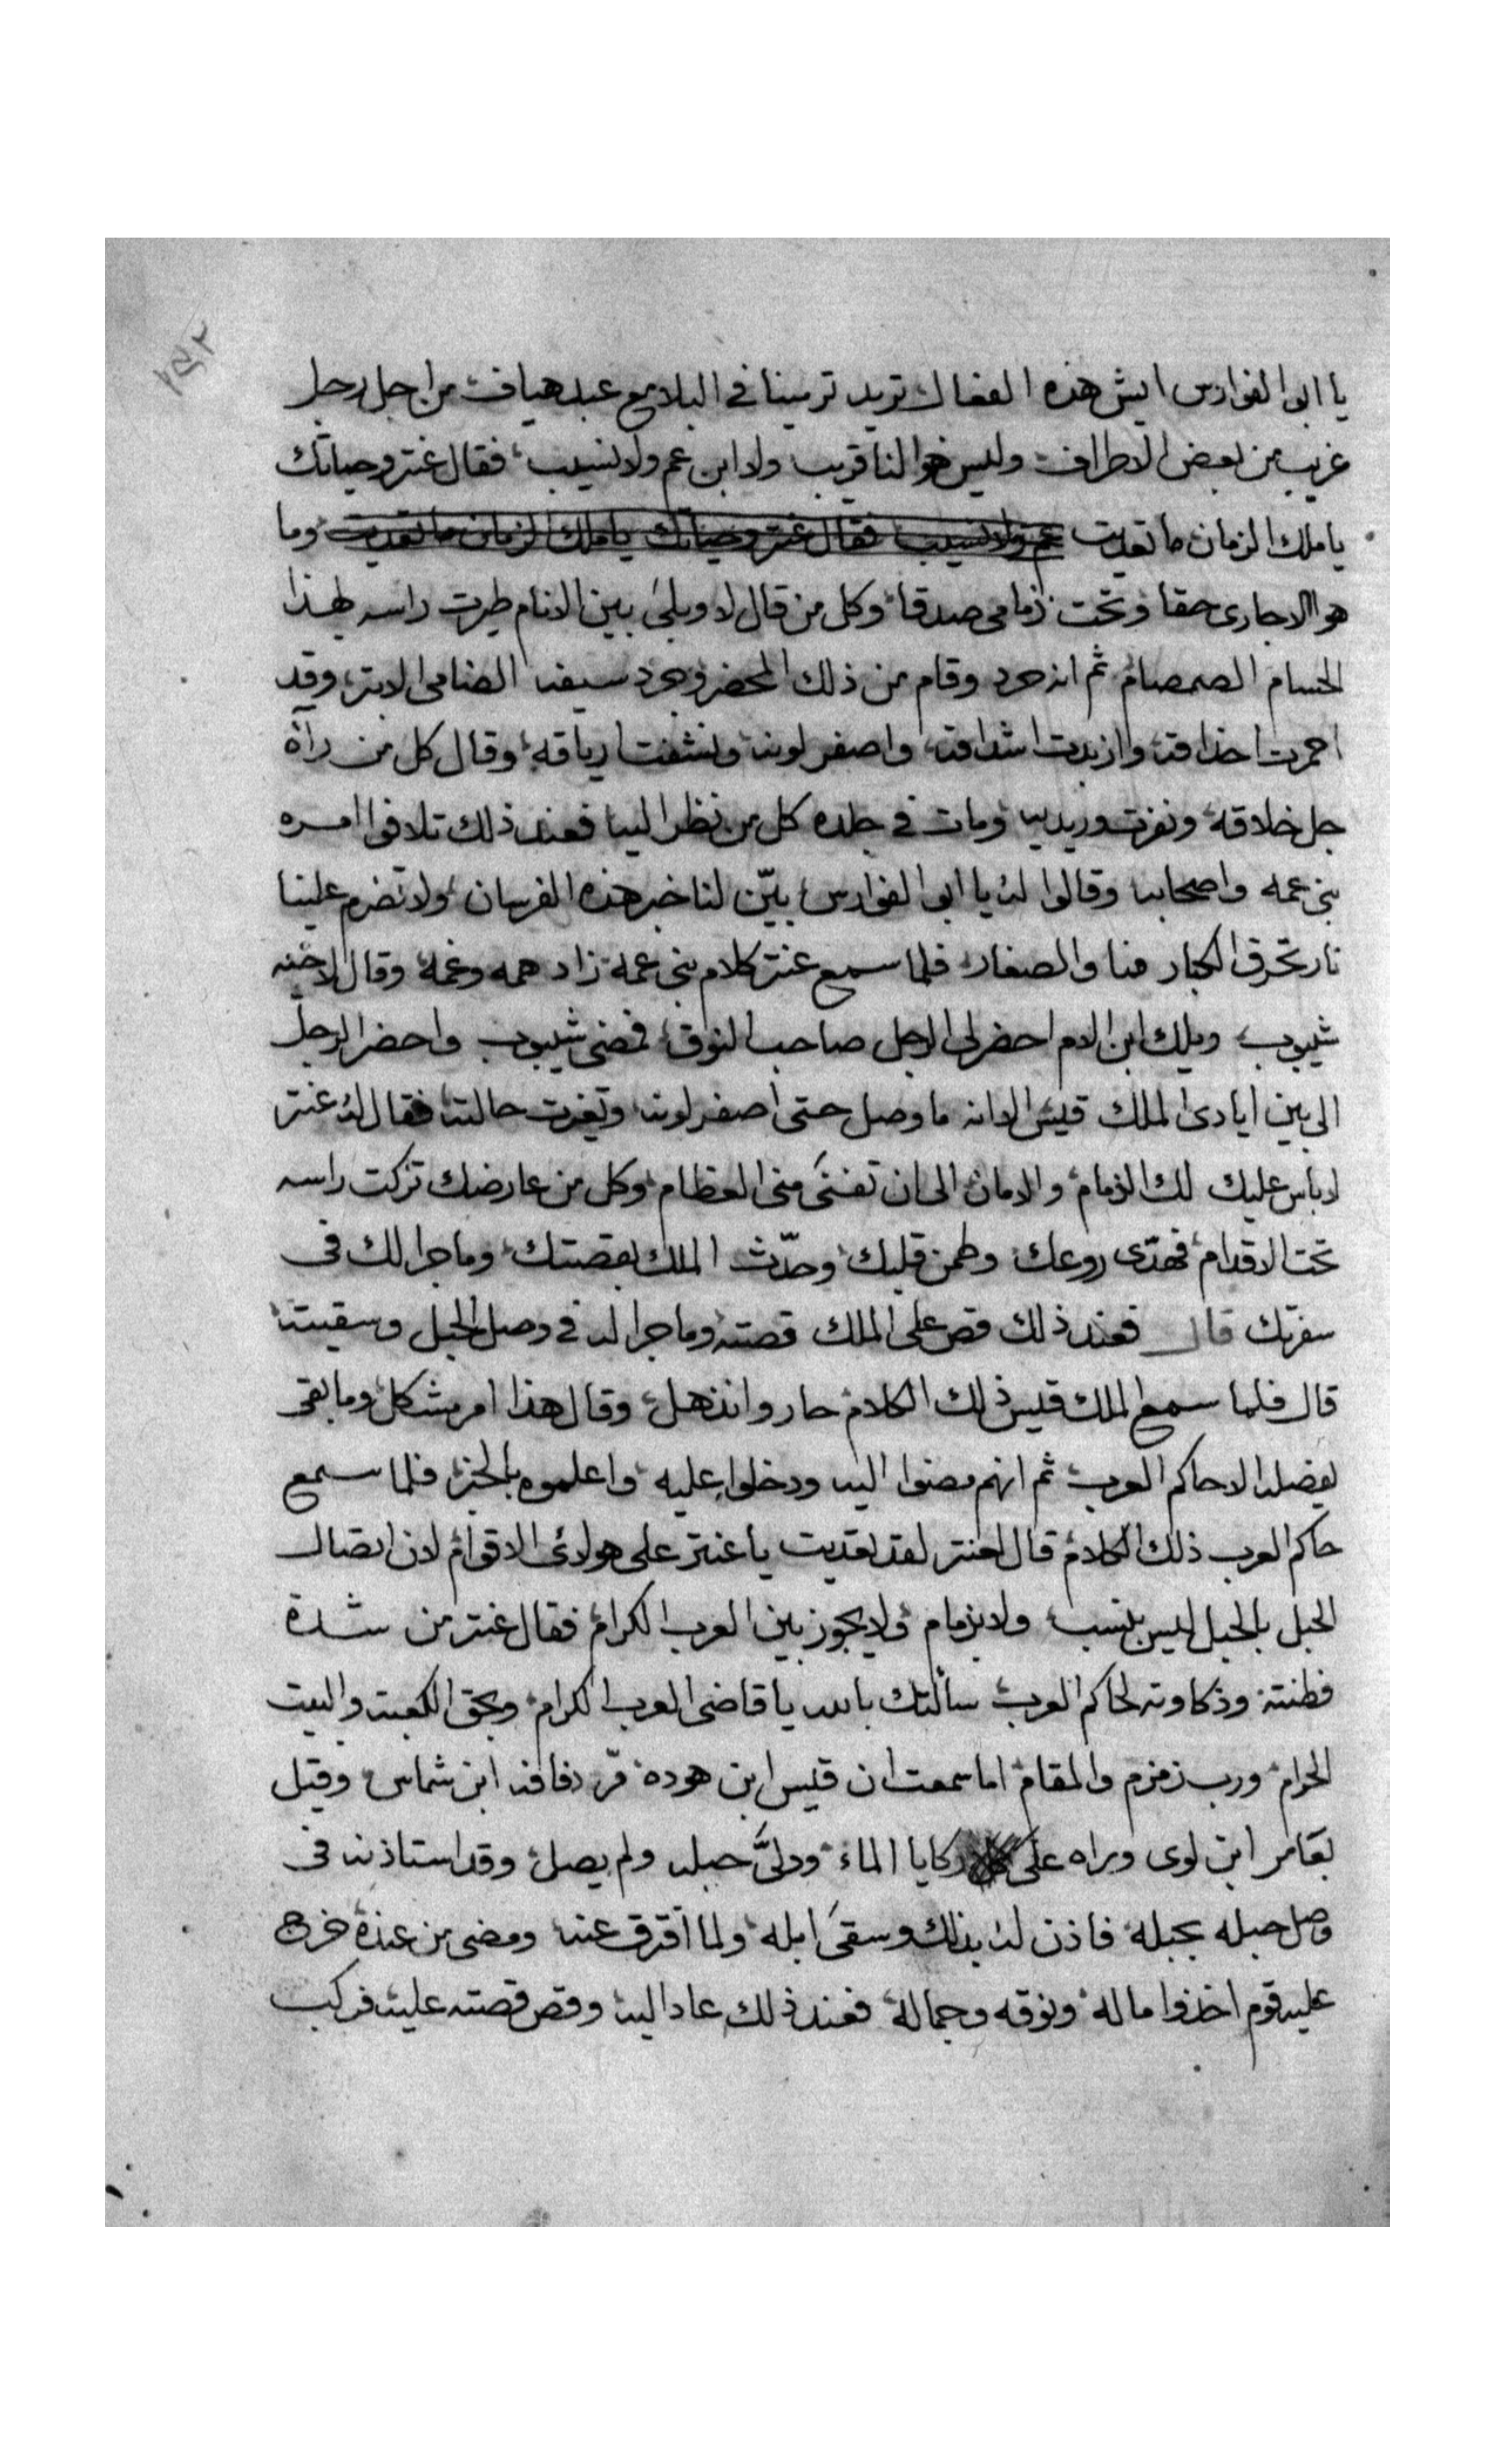 ١٤٢
يا ابى الفوارس ايش هذه الفعال تريد ترمينا فى البلا مع عبد هياف من اجل رجل
غريب من بعض الاطراف وليس هو النا قريب ولا ابن عم ولا نسيب فقال عنتر وحياتك
يا ملك الزمان ما تعديت عم ولا نسيب فقال عنتر وحياتك يا ملك الزمان ما تعديت وما
هو الا جارى حقا وتحت زمامى صدقا وكل من قال لا وبلى بين الانام طيرت راسه بهذا
الحسام الصمصام ثم انه حرد وقام من ذلك المحضر وجرد سيفه الضامى الابتر وقد
احمرت احداقه وازبدت اشداقه واصفر لونه ونشفت ارياقه وقال كل من رآه
جل خلاقه ونفرت وريديه ومات فى جلده كل من نظر اليه فعند ذلك تلافوا امره
بنى عمه واصحابه وقالوا له يا ابى الفوارس بيّن لنا خبر هذه الفرسان ولا تضرم علينا
نار تحرق الكبار منا والصغار فلما سمع عنتر كلام بنى عمه زاد همه وغمه وقال لاخيه
شيبوب ويلك ابن الام احضر لى الرجل صاحب النوق فمضى شيبوب واحضر الرجل
الى بين ايادى الملك قيس الا انه ما وصل حتى اصفر لونه وتغيرت حالته فقال له عنتر
لا باس عليك لك الزمام والامان الى ان تفنى منى العظام وكل من عارضك تركت راسه
تحت الاقدام فهدّى روعك وطمن قلبك وحدّث الملك بقصتك وما جرا لك فى
سفرتك قال فعند ذلك قص على الملك قصته وما جرا له فى وصل الحبل وسقيته
قال فلما سمع الملك قيس ذلك الكلام حار وانذهل وقال هذا امر مشكل وما بقى
يفصله الا حاكم العرب ثم انهم مضوا اليه ودخلوا عليه واعلموه بالخبر فلما سمع
حاكم العرب ذلك الكلام قال لعنتر لقد تعديت يا عنتر على هولائى الاقوام لان اتصال
الحبل بالحبل ليس بنسب ولا بزمام ولا يجوز بين العرب الكرام فقال عنتر من شدة
فطنته وذكاوته لحاكم العرب سألتك بالله يا قاضى العرب الكرام وبحق الكعبه والبيت
الحرام ورب زمزم والمقام اما سمعت ان قيس ابن هوده مرّ رفاقه ابن شماس وقيل
بعامر ابن لوى وراه على ركايا الماء ودلىَّ حبله ولم يصل وقد استاذنه فى
وصل حبله بحبله فاذن له بذلك وسقى ابله ولما افترق عنه ومضى من عنده خرج
عليه قوم اخذوا ماله ونوقه وجماله فعند ذلك عاد اليه وقص قصته عليه فركب